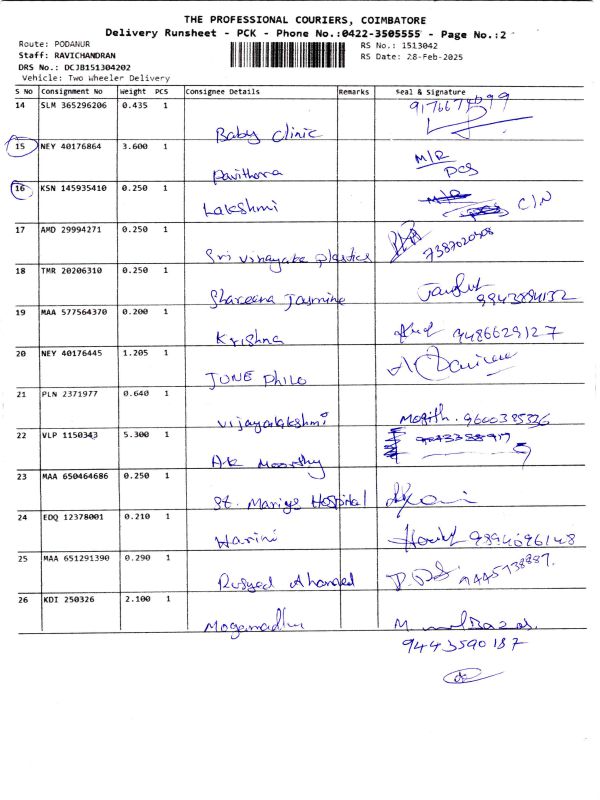 THE PROFESSIONAL COURIERS, COIMBATORE
Delivery Runsheet - PCK - Phone No.:0422-3505555 - Page No.:2
Route: PODANUR RS No.: 1513042
Staff: RAVICHANDRAN RS Date: 28-Feb-2025
DRS No.: DCJB151304202
Vehicle: Two Wheeler Delivery
S No Consignment No Weight PCS Consignee Details Remarks Seal & Signature
14 SLM 365296206 0.435 1
Baby Clinic
15 NEY 40176864 3.600 1 M/R
Pavithora PCS
16 KSN 145935410 0.250 1
Lakshmi C/N
17 AMD 29994271 0.250 1
Sri Vinayaka plastics
18 TMR 20206310 0.250 1
Shareena Jasmine 9943894132
19 MAA 577564370 0.200 1
Krishna 9486629127
20 NEY 40176445 1.205 1
JUNE Philo
21 PLN 2371977 0.640 1
Vijayalakshmi 9600385326
22 VLP 1150343 5.300 1
AK Moorthy
23 MAA 650464686 0.250 1
St. Mariys Hospital
24 EDQ 12378001 0.210 1
Harini 9894096148
25 MAA 651291390 0.290 1
26 KDI 250326 2.100 1
9443590187